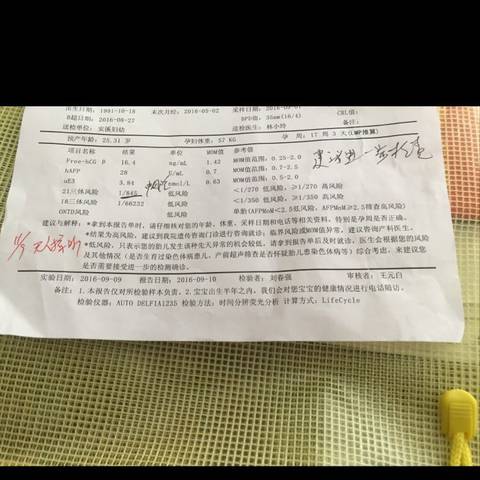 出生日期：1991-10-18 末次月经：2016-05-02 采样日期：2016-09-01
B超日期：2016-08-22 BPD值：35mm(16/4) CRL值：
送检单位：安溪妇幼 送检医生：林小玲 备注：
预产年龄：25.31 岁 孕妇体重：57 KG 孕 周：17 周 3 天(LMP推算)
项目名称 结果 单位 MOM值 参考值
Free-hCG β 16.4 ng/mL 1.42 MOM值范围：0.25-2.0
hAFP 28 U/mL 0.7 MOM值范围：0.7-2.5
uE3 3.84 nmol/L 0.63 MOM值范围：0.5-2.0
21三体风险 1/845 低风险 <1/270 低风险，≥1/270 高风险
18三体风险 1/66232 低风险 <1/350 低风险，≥1/350 高风险
ONTD风险 低风险 单胎(AFPMoM<2.5低风险，AFPMoM≥2.5筛查高风险)
建议与解释：*拿到本报告单时，请仔细核对您的年龄、体重、采样日期和电话等相关资料，特别是孕周是否正确。
*结果为高风险，建议到我院遗传咨询门诊进行咨询就诊；临界风险或MOM值异常，建议咨询产科医生。
*低风险，只表示您的胎儿发生该种先天异常的机会较低，请拿到报告单后及时就诊，医生会根据您的风险
及其他情况（是否生育过染色体病患儿、产前超声检查是否怀疑胎儿患染色体病等）综合考虑，来建议您
是否需要接受进一步的检测确诊。
实验日期：2016-09-09 报告日期：2016-09-10 检验者：刘春强 审核者：王元白
备注：1.本报告仅对所检验样本负责。2.宝宝出生半年之内，我们会对您宝宝的健康情况进行电话随访。
检验仪器：AUTO DELFIA1235 检验方法：时间分辨荧光分析 计算方式：LifeCycle